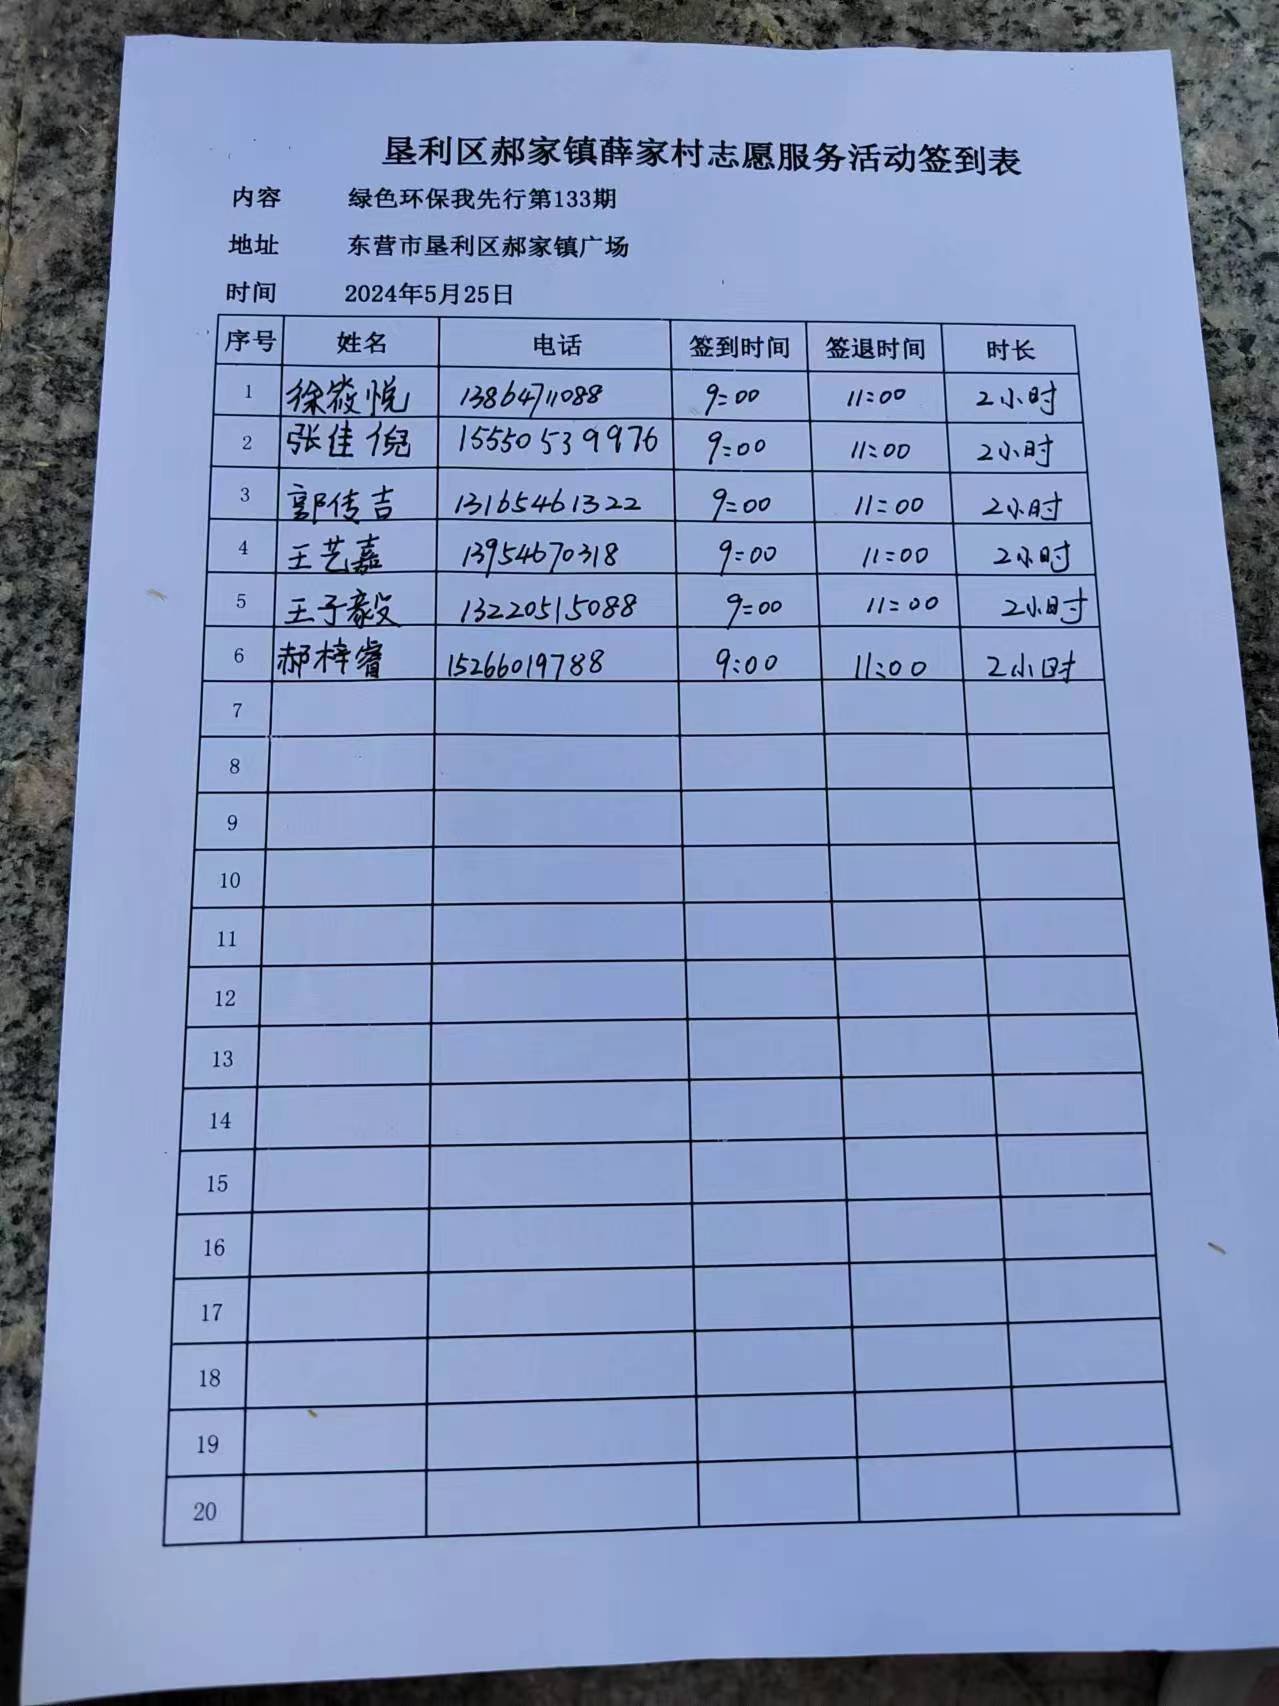 垦利区郝家镇薛家村志愿服务活动签到表
内容 绿色环保我先行第133期
地址 东营市垦利区郝家镇广场
时间 2024年5月25日
序号 姓名 电话 签到时间 签退时间 时长
1 徐筱悦 13864711088 9:00 11:00 2小时
2 张佳倪 15550539976 9:00 11:00 2小时
3 郭传吉 13165461322 9:00 11:00 2小时
4 王艺嘉 13954670318 9:00 11:00 2小时
5 王子毅 13220515088 9:00 11:00 2小时
6 郝梓睿 15266019788 9:00 11:00 2小时
7
8
9
10
11
12
13
14
15
16
17
18
19
20